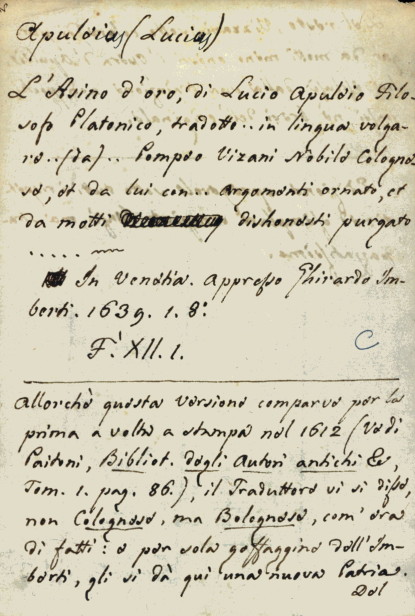 Apuleius (Lucius)
L'Asino d'oro, di Lucio Apuleio Filo-
sofo Platonico, tradotto .. in lingua volga-
re .. (da) .. Pompeo Vizani Nobile Cologne-
se, et da lui con ... argomenti ornato, et
da motti dishonesti purgato
.....
In Venetia. Appresso Ghirardo Im-
berti. 1639. 1. 8.º
F. XII. 1.
C
Allorchè questa versione comparve per la
prima a volta a stampa nel 1612 (Vedi
Paitoni, Bibliot. degli Autori antichi Ec,
Tom. 1. pag. 86.), il Traduttore vi si disse
non Colognese, ma Bolognese, com'era
di fatti: e per sola goffaggine dell'Im-
berti, gli si dà qui una nuova Patria.
Del